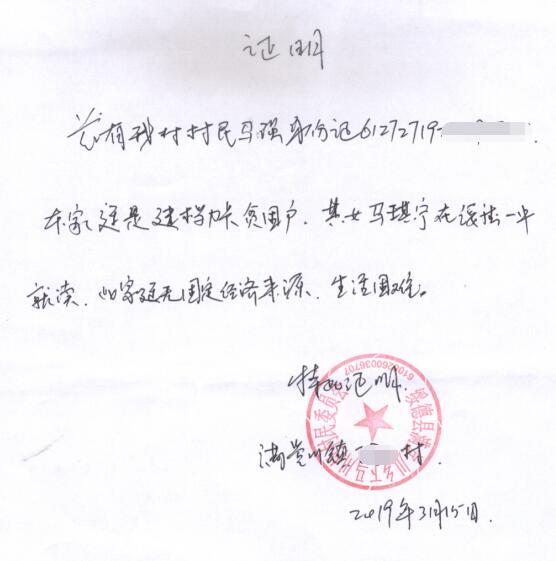 证明
兹有我村村民马强身份证61272719
本家庭是建档立卡贫困户,其女马琪宁在绥德一中
就读,此家庭无固定经济来源,生活困难。
特此证明.
满堂川镇 村
2019年3月15日.
6108260036707
绥德县满堂川乡下马 村民委员会